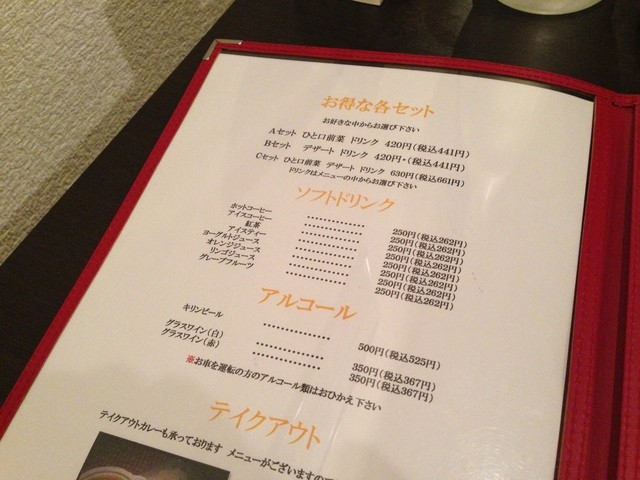 お得な各セット
お好きな中からお選び下さい
Aセット ひと口前菜 ドリンク 420円(税込441円)
Bセット デザート ドリンク 420円・(税込441円)
Cセット ひと口前菜 デザート ドリンク 630円(税込661円)
ドリンクはメニューの中からお選び下さい
ソフトドリンク
ホットコーヒー ・・・・・・・・・・・・ 250円(税込262円)
アイスコーヒー ・・・・・・・・・・・・ 250円(税込262円)
紅茶 ・・・・・・・・・・・・ 250円(税込262円)
アイスティー ・・・・・・・・・・・・ 250円(税込262円)
ヨーグルトジュース ・・・・・・・・・・・・ 250円(税込262円)
オレンジジュース ・・・・・・・・・・・・ 250円(税込262円)
リンゴジュース ・・・・・・・・・・・・ 250円(税込262円)
グレープフルーツ ・・・・・・・・・・・・ 250円(税込262円)
アルコール
キリンビール ・・・・・・・・・・・・ 500円(税込525円)
グラスワイン(白) ・・・・・・・・・・・・ 350円(税込367円)
グラスワイン(赤) ・・・・・・・・・・・・ 350円(税込367円)
※お車を運転の方のアルコール類はおひかえ下さい
テイクアウト
テイクアウトカレーも承っております メニューがございますの